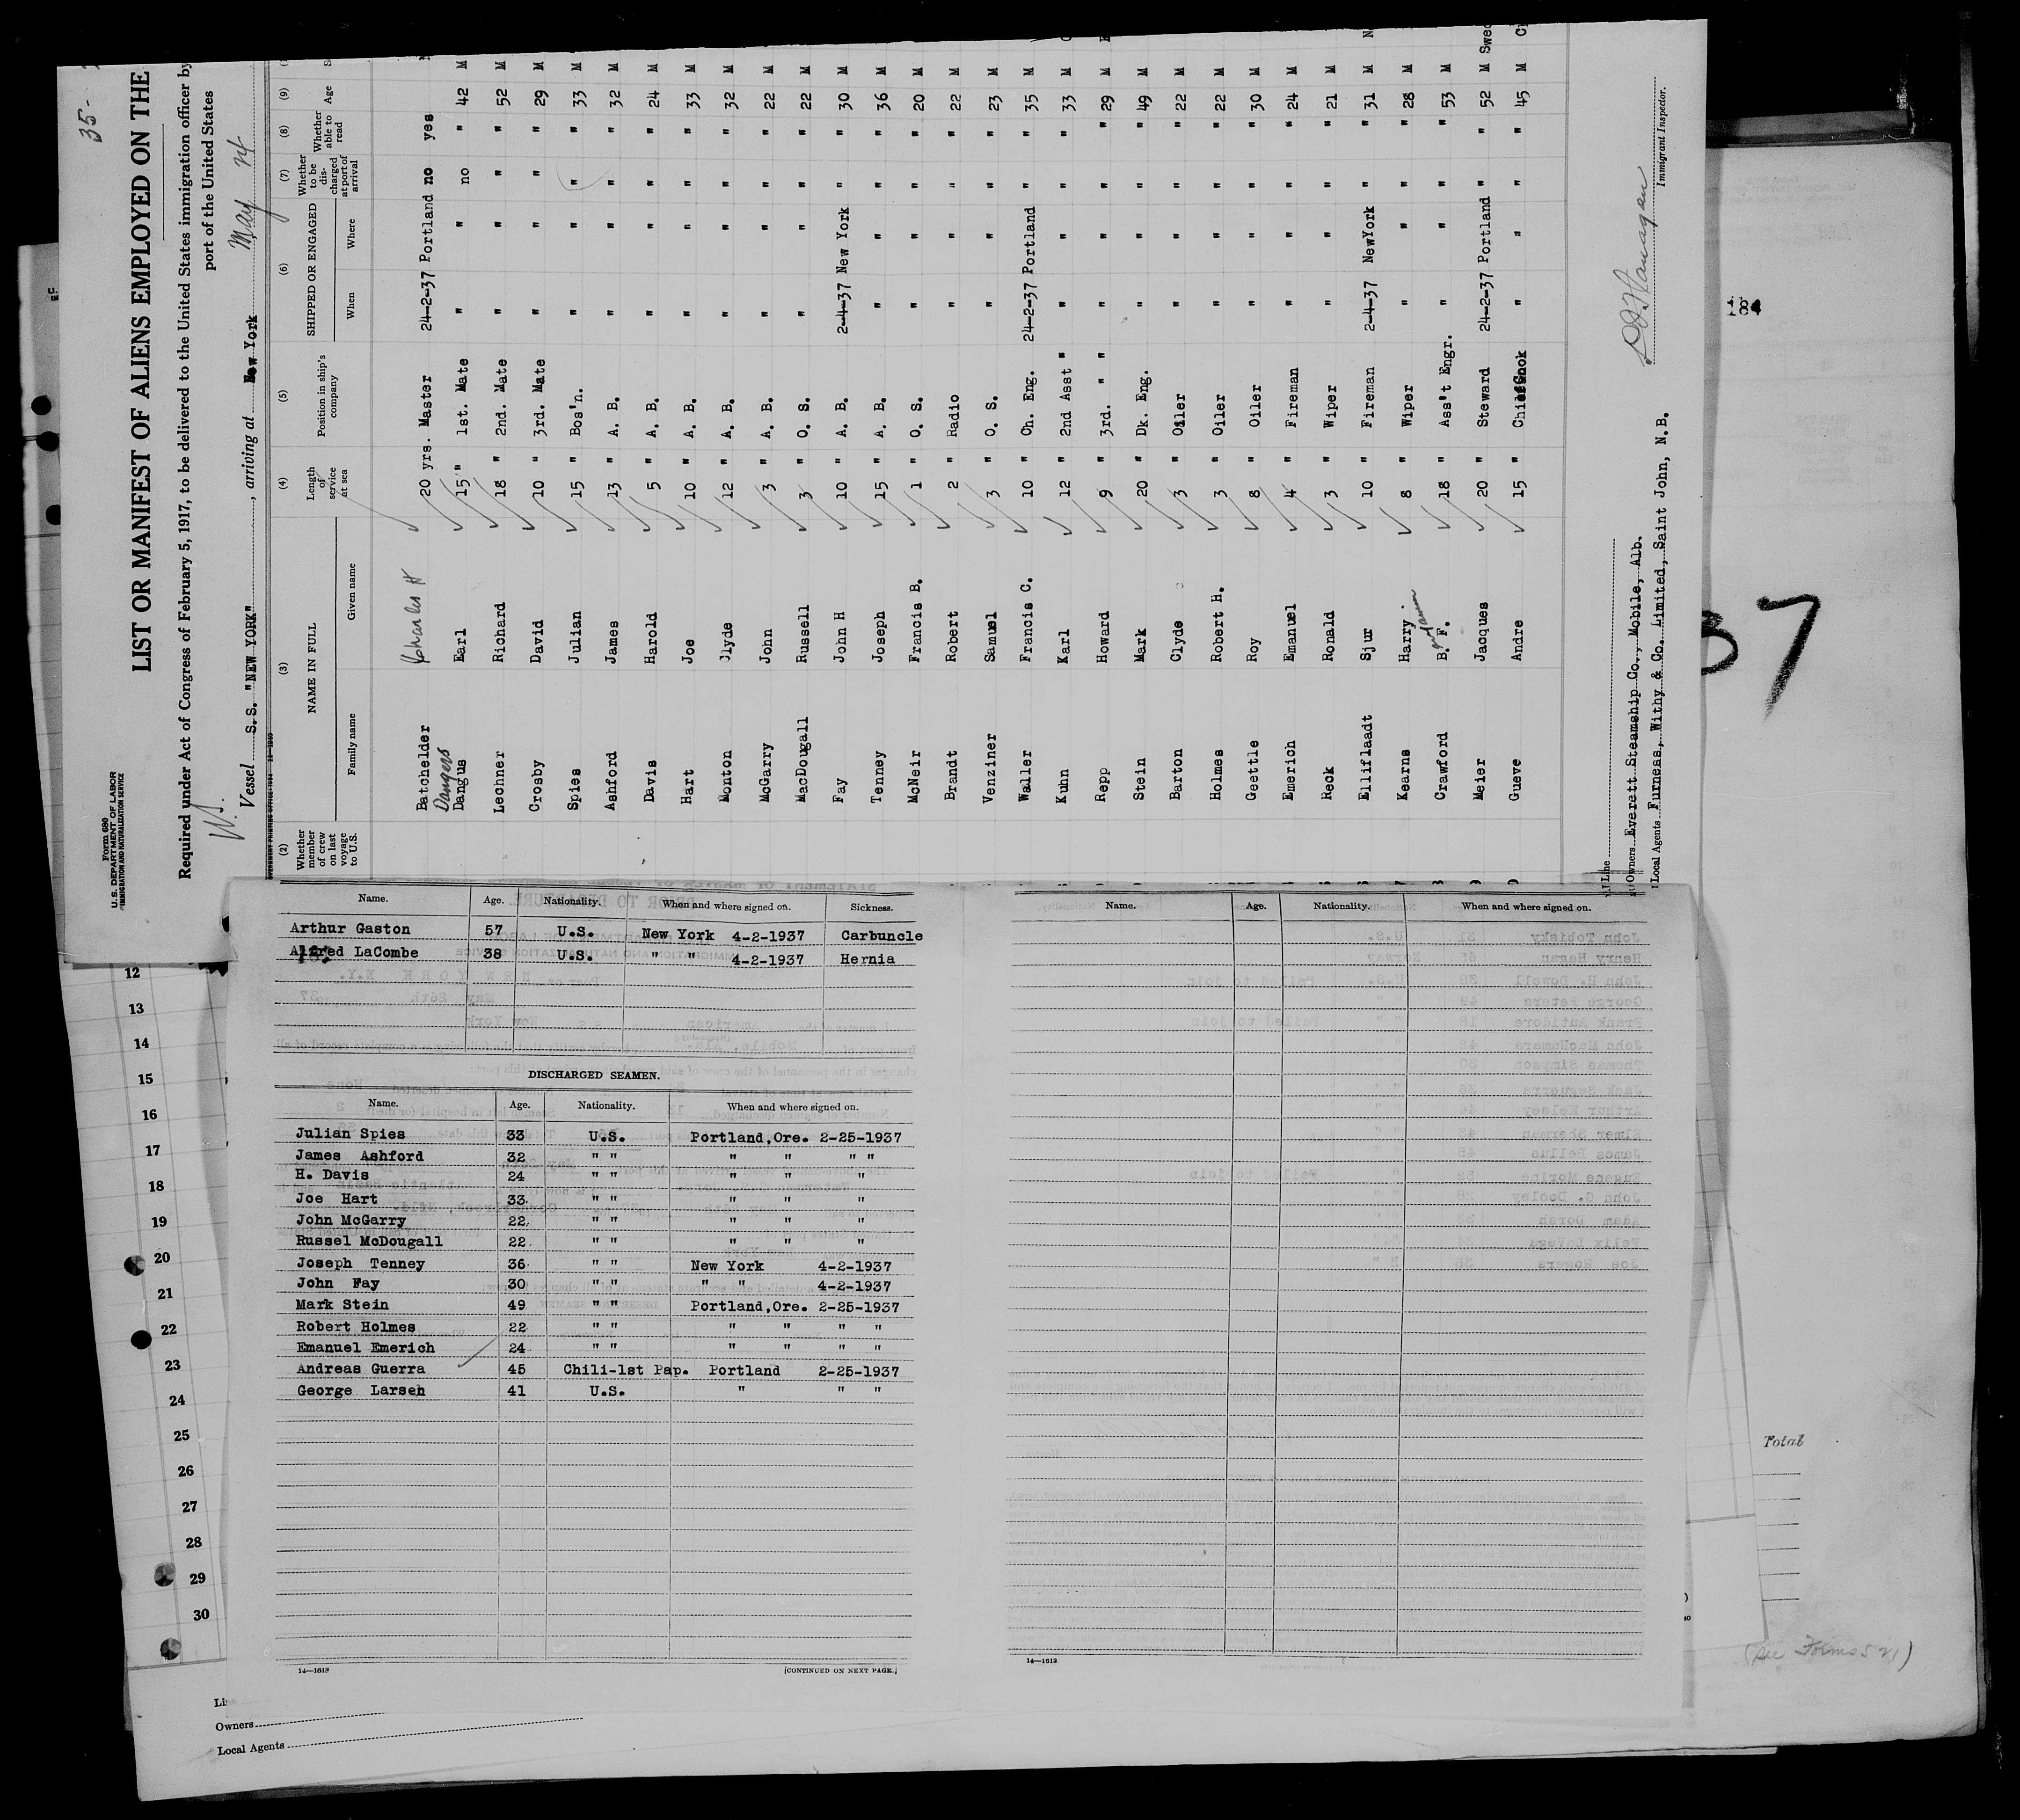 35-
Form 680
U. S. DEPARTMENT OF LABOR
IMMIGRATION AND NATURALIZATION SERVICE
LIST OR MANIFEST OF ALIENS EMPLOYED ON THE
Required under Act of Congress of February 5, 1917, to be delivered to the United States immigration officer by
port of the United States
Vessel S.S. "NEW YORK", arriving at New York May
(2) (3) (4) (5) (6) (7) (8) (9)
Whether member of crew on last voyage to U.S. NAME IN FULL Family name Given name Length of service at sea Position in ship's company SHIPPED OR ENGAGED When Where Whether to be discharged at port of arrival Whether able to read Age
Batchelder Charles H 20 yrs. Master 24-2-37 Portland no yes
Dangers
Dangus Earl 15 " 1st. Mate " " no " 42 M
Lechner Richard 18 " 2nd. Mate " " " " 52 M
Crosby David 10 " 3rd. Mate " " " " 29 M
Spies Julian 15 " Bos'n. " " " " 33 M
Ashford James 13 " A. B. " " " " 32 M
Davis Harold 5 " A. B. " " " " 24 M
Hart Joe 10 " A. B. " " " " 33 M
Monton Clyde 12 " A. B. " " " " 32 M
McGarry John 3 " A. B. " " " " 22 M
MacDougall Russell 3 " O. S. " " " " 22 M
Fay John H 10 " A. B. 2-4-37 New York " " 30 M
Tenney Joseph 15 " A. B. " " " " 36 M
McNeir Francis B. 1 " O. S. " " " " 20 M
Brandt Robert 2 " Radio " " " " 22 M
Venziner Samuel 3 " O. S. " " " " 23 M
Waller Francis C. 10 " Ch. Eng. 24-2-37 Portland " " 35 M
Kuhn Karl 12 " 2nd Asst " " " " " 33 M
Repp Howard 9 " 3rd. " " " " " " 29 M
Stein Mark 20 " Dk. Eng. " " " " 49 M
Barton Clyde 3 " Oiler " " " " 22 M
Holmes Robert H. 3 " Oiler " " " " 22 M
Goettle Roy 8 " Oiler " " " " 30 M
Emerich Emanuel 4 " Fireman " " " " 24 M
Reck Ronald 3 " Wiper " " " " 21 M
Elliflaadt Sjur 10 " Fireman 2-4-37 NewYork " " 31 M
Kearns Harry 8 " Wiper " " " " 28 M
Crawford B. F. 18 " Ass't Engr. " " " " 53 M
Meier Jacques 20 " Steward 24-2-37 Portland " " 52 M Swe
Gueve Andre 15 " Chief Cook " " " " 45 M
Immigrant Inspector.
Owners Everett Steamship Co., Mobile, Alb.
Local Agents Furness, Withy & Co. Limited, Saint John, N.B.
Name. Age. Nationality. When and where signed on. Sickness.
Arthur Gaston 57 U.S. New York 4-2-1937 Carbuncle
Alfred LaCombe 38 U.S. " " 4-2-1937 Hernia
DISCHARGED SEAMEN.
Name. Age. Nationality. When and where signed on.
Julian Spies 33 U.S. Portland,Ore. 2-25-1937
James Ashford 32 " " " " " "
H. Davis 24 " " " " "
Joe Hart 33 " " " " "
John McGarry 22 " " " " "
Russel McDougall 22 " " " " "
Joseph Tenney 36 " " New York 4-2-1937
John Fay 30 " " " " 4-2-1937
Mark Stein 49 " " Portland,Ore. 2-25-1937
Robert Holmes 22 " " " " " "
Emanuel Emerich 24 " " " " " "
Andreas Guerra 45 Chili-1st Pap. Portland 2-25-1937
George Larsen 41 U.S. " " "
14—1613 [CONTINUED ON NEXT PAGE.]
Name. Age. Nationality. When and where signed on.
14—1613
12
13
14
15
16
17
18
19
20
21
22
23
24
25
26
27
28
29
30
Owners
Local Agents
184
37
Total